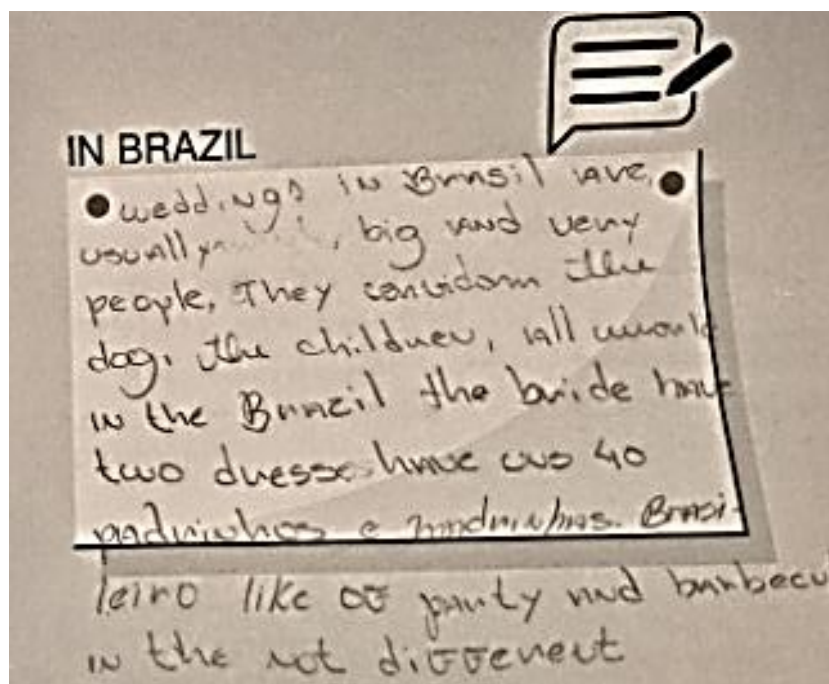 IN BRAZIL
weddings in Brasil are,
usually, big and very
people. They convidam the
dog, the children, all
in the Brazil the bride have
two duesse have 40
padrinhos e madrinhas. Brasi-
leiro like of party and barbecu
in the not different